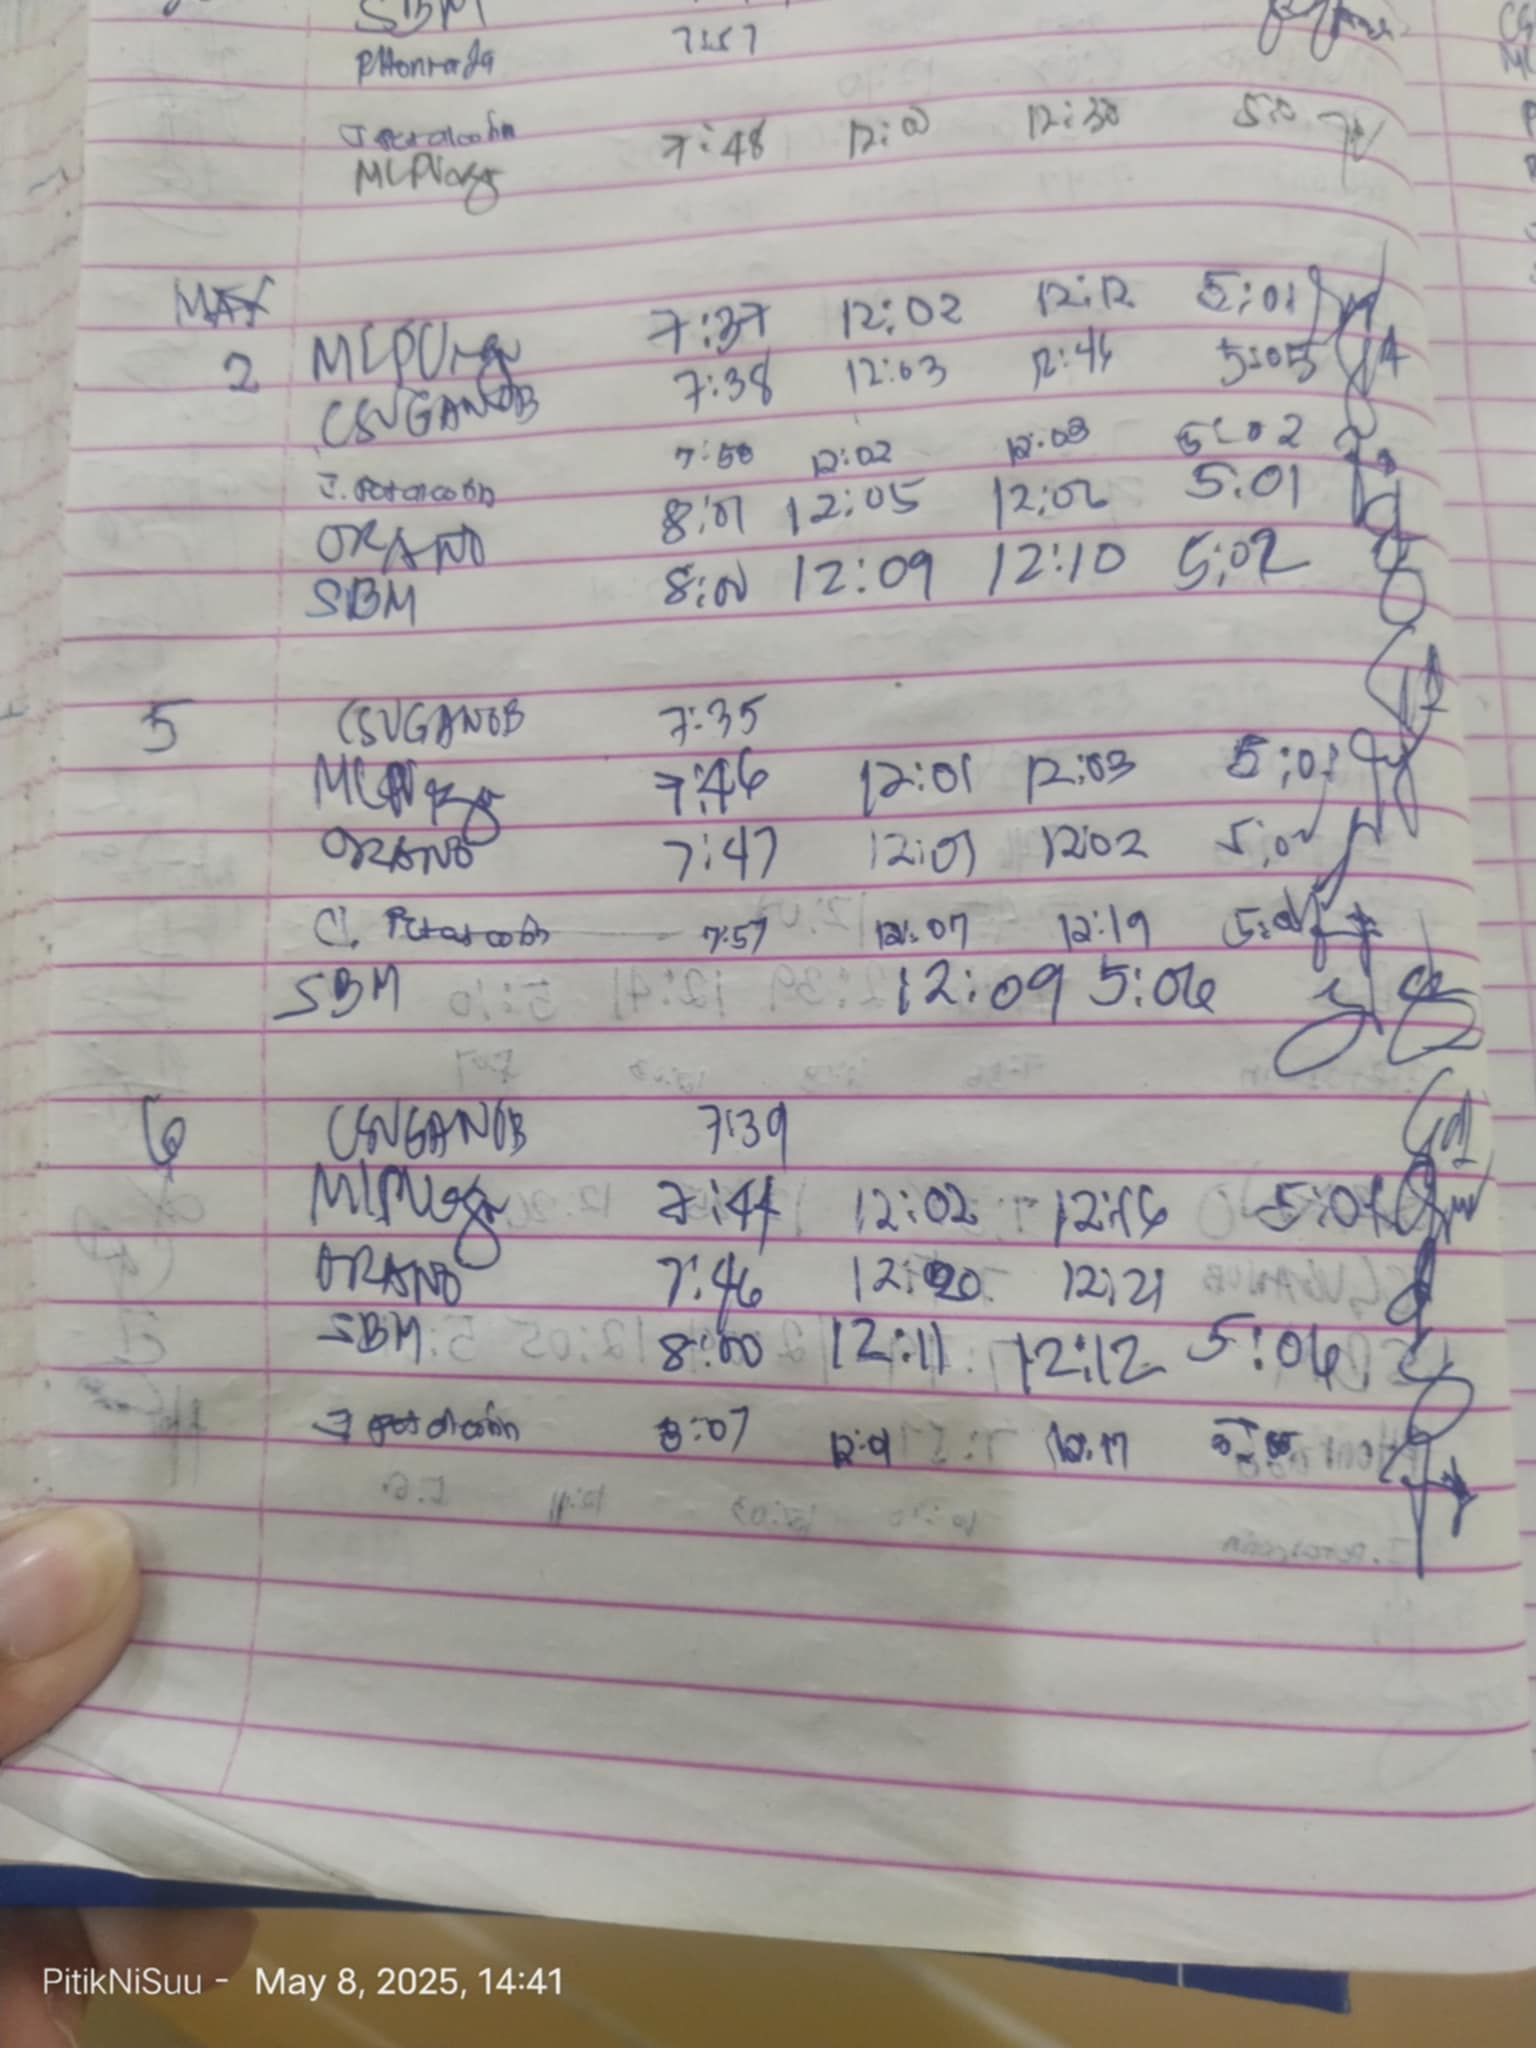 SBM
PHonrada 7:57
J Petalcorin 7:48 12:00 12:30 5:0
MLPVerga
MAY
2 MLPVerga 7:37 12:02 12:12 5:01
CSUGANOB 7:38 12:03 12:44 5:05
J. Petalcorin 7:50 12:02 12:03 5:02
ORANO 8:01 12:05 12:06 5:01
SBM 8:00 12:09 12:10 5:02
5 CSUGANOB 7:35
MLPVerga 7:46 12:01 12:03 5:01
ORANO 7:47 12:01 12:02 5:01
J. Petalcorin 7:57 12:07 12:19
SBM 12:09 5:06
6 CSUGANOB 7:39
MLPVerga 7:44 12:02 12:16 5:01
ORANO 7:46 12:20 12:21
SBM 8:00 12:11 12:12 5:06
J Petalcorin 8:07 12:9 12:17
PitikNiSuu - May 8, 2025, 14:41